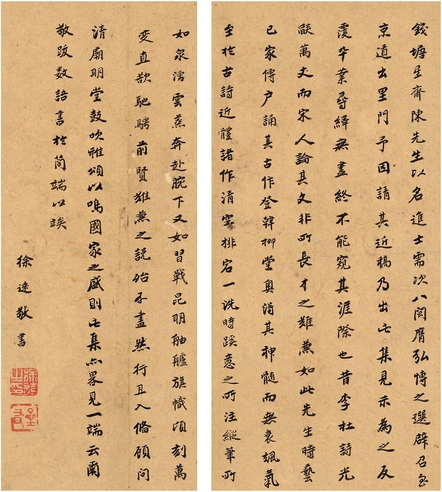 錢塘星齋陳先生以名進士需次八閩膺弘博之選辟召至
京道出里門予因請其近稿乃出此集見示為之反
覆卒業尋繹無盡終不能窺其涯際也昔李杜詩光
燄萬丈而宋人論其文非所長才之難兼如此先生時藝
已家傳户誦其古作登韓柳堂奧得其神髓而無衰颯氣
至於古詩近體諸作清空排宕一洗時蹊意之所注縱筆所
如泉湧雲蒸奔赴腕下又如習戰昆明舳艫旗幟頃刻萬
變直欲馳騁前賢難兼之説殆不盡然行且入備顧問
清廟明堂鼓吹雅頌以鳴國家之盛則此集亦畧見一端云爾
敬跋數語書於簡端以竢
徐逵敬書